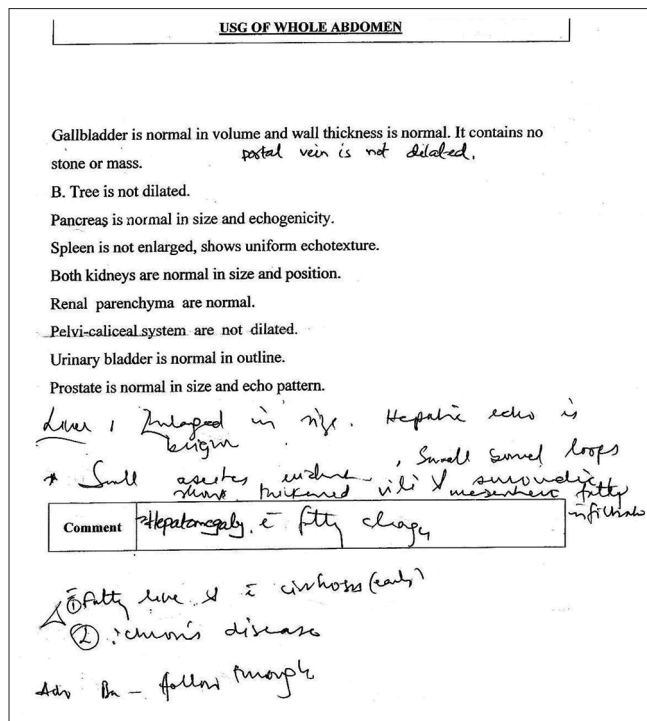 USG OF WHOLE ABDOMEN
Gallbladder is normal in volume and wall thickness is normal. It contains no
stone or mass. portal vein is not dilated.
B. Tree is not dilated.
Pancreas is normal in size and echogenicity.
Spleen is not enlarged, shows uniform echotexture.
Both kidneys are normal in size and position.
Renal parenchyma are normal.
Pelvi-caliceal system are not dilated.
Urinary bladder is normal in outline.
Prostate is normal in size and echo pattern.
Liver : Enlarged in size. Hepatic echo is
* Small ascites , Small bowel loops
show thickened villi & mesenteric fatty
Comment Hepatomegaly c̄ fatty change
① Fatty liver c̄ cirrhosis (early)
② chron's disease
Adv Ba - follow through